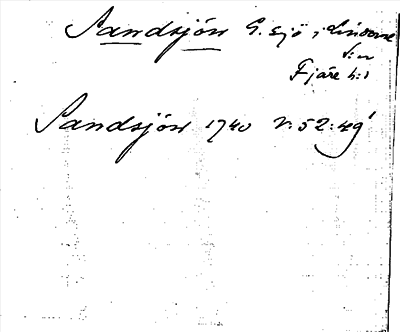 Sandsjön G. sjö i Lindome
s:n
Fjäre h:d
Sandsjön 1740 V:52:49